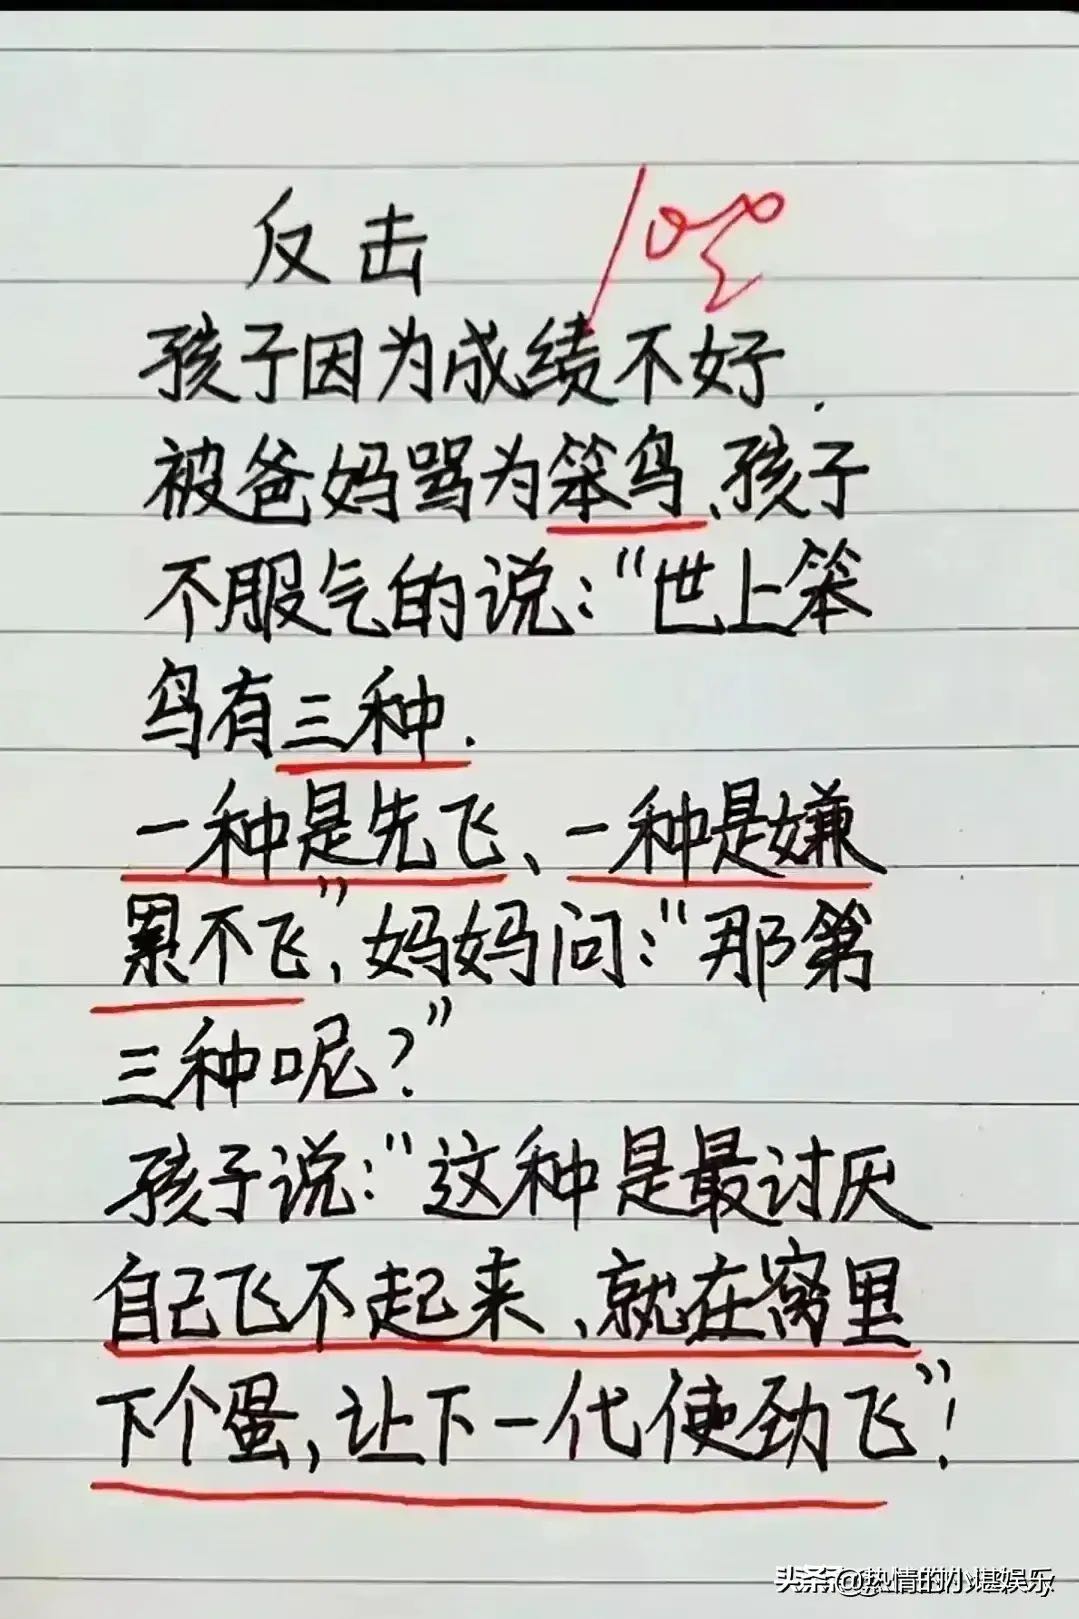 反击 100
孩子因为成绩不好.
被爸妈骂为笨鸟、孩子
不服气的说：“世上笨
鸟有三种.
一种是先飞、一种是嫌
累不飞”，妈妈问：“那第
三种呢？”
孩子说：“这种是最讨厌
自己飞不起来、就在窝里
下个蛋，让下一代使劲飞”！
头条 @热情的小堪娱乐